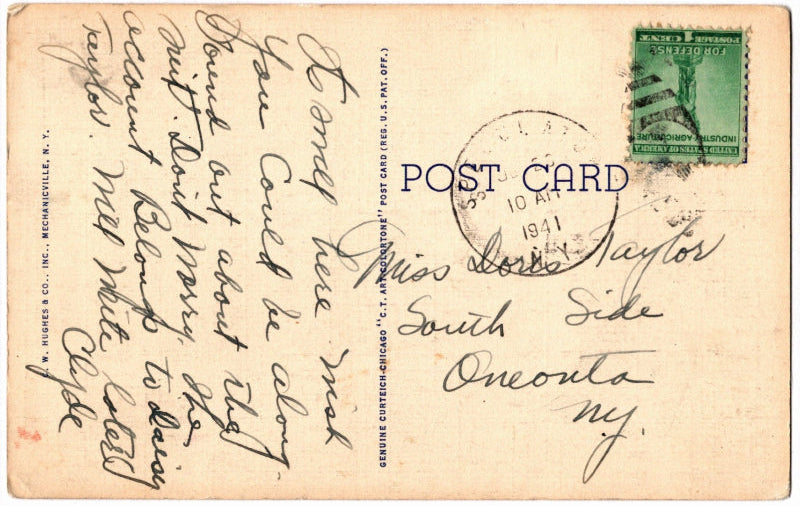 It smell here. Wish
You Could be along.
Found out about the
mirt. Don't Worry. The
account Belongs to Daisy
Taylor. Will Write Later
Clyde
W. HUGHES & CO., INC., MECHANICVILLE, N. Y.
GENUINE CURTEICH-CHICAGO "C.T. ART-COLORTONE" POST CARD (REG. U.S. PAT. OFF.)
POST CARD
10 AM
1941
N.Y.
UNITED STATES OF AMERICA
INDUSTRY·AGRICULTURE
FOR DEFENSE
POSTAGE 1 CENT
Miss Doris Taylor
South Side
Oneonta
Ny.